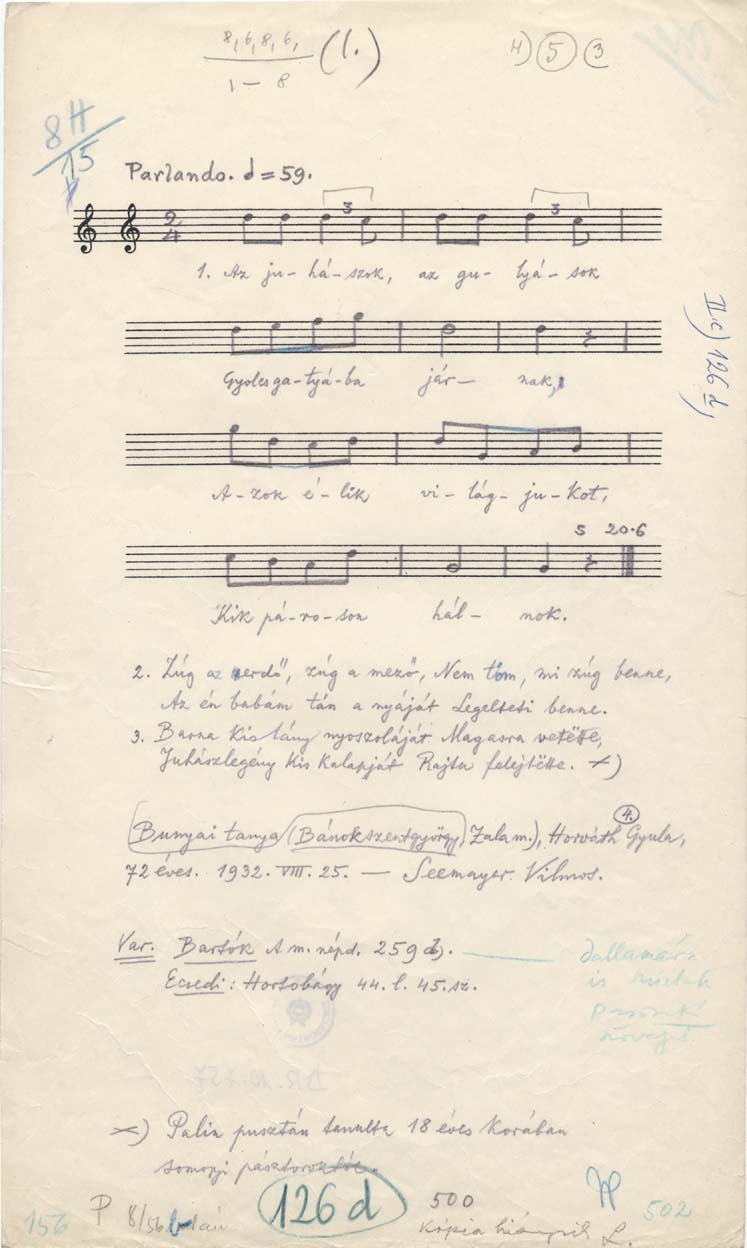 8, 6, 8, 6, (1.) 4) 5 3
1 – 8
8H
15
Parlando. = 59.
2/4 3 3
1. Az ju- há- szok, az gu- lyá- sok
II.c) 126 d,
Gyolcsga-tyá-ba jár- nak,
A-zok é-lik vi-lág-ju-kot,
5 20·6
Kik pá-ro-son hál- nok.
2. Zúg az erdő, zúg a mező, Nem tom, mi zúg benne,
Az én babám tán a nyáját Legelteti benne.
3. Barna kis lány nyoszoláját Magasra vetëtte,
Juhászlegény kis kalapját Rajta felejtëtte. ×)
4.
(Bunyai tanya (Bánokszentgyörgy, Zala m.), Horváth Gyula,
72 éves. 1932. VIII. 25. — Seemayer Vilmos.
Var. Bartók A m. népd. 259 b). — dallamára
Ecsedi: Hortobágy 44. l. 45. sz. is
×) Palin pusztán tanulta 18 éves korában
somogyi pásztoroktól.
156 P 8/56 126 d 500 502
Kópia hiányzik L.